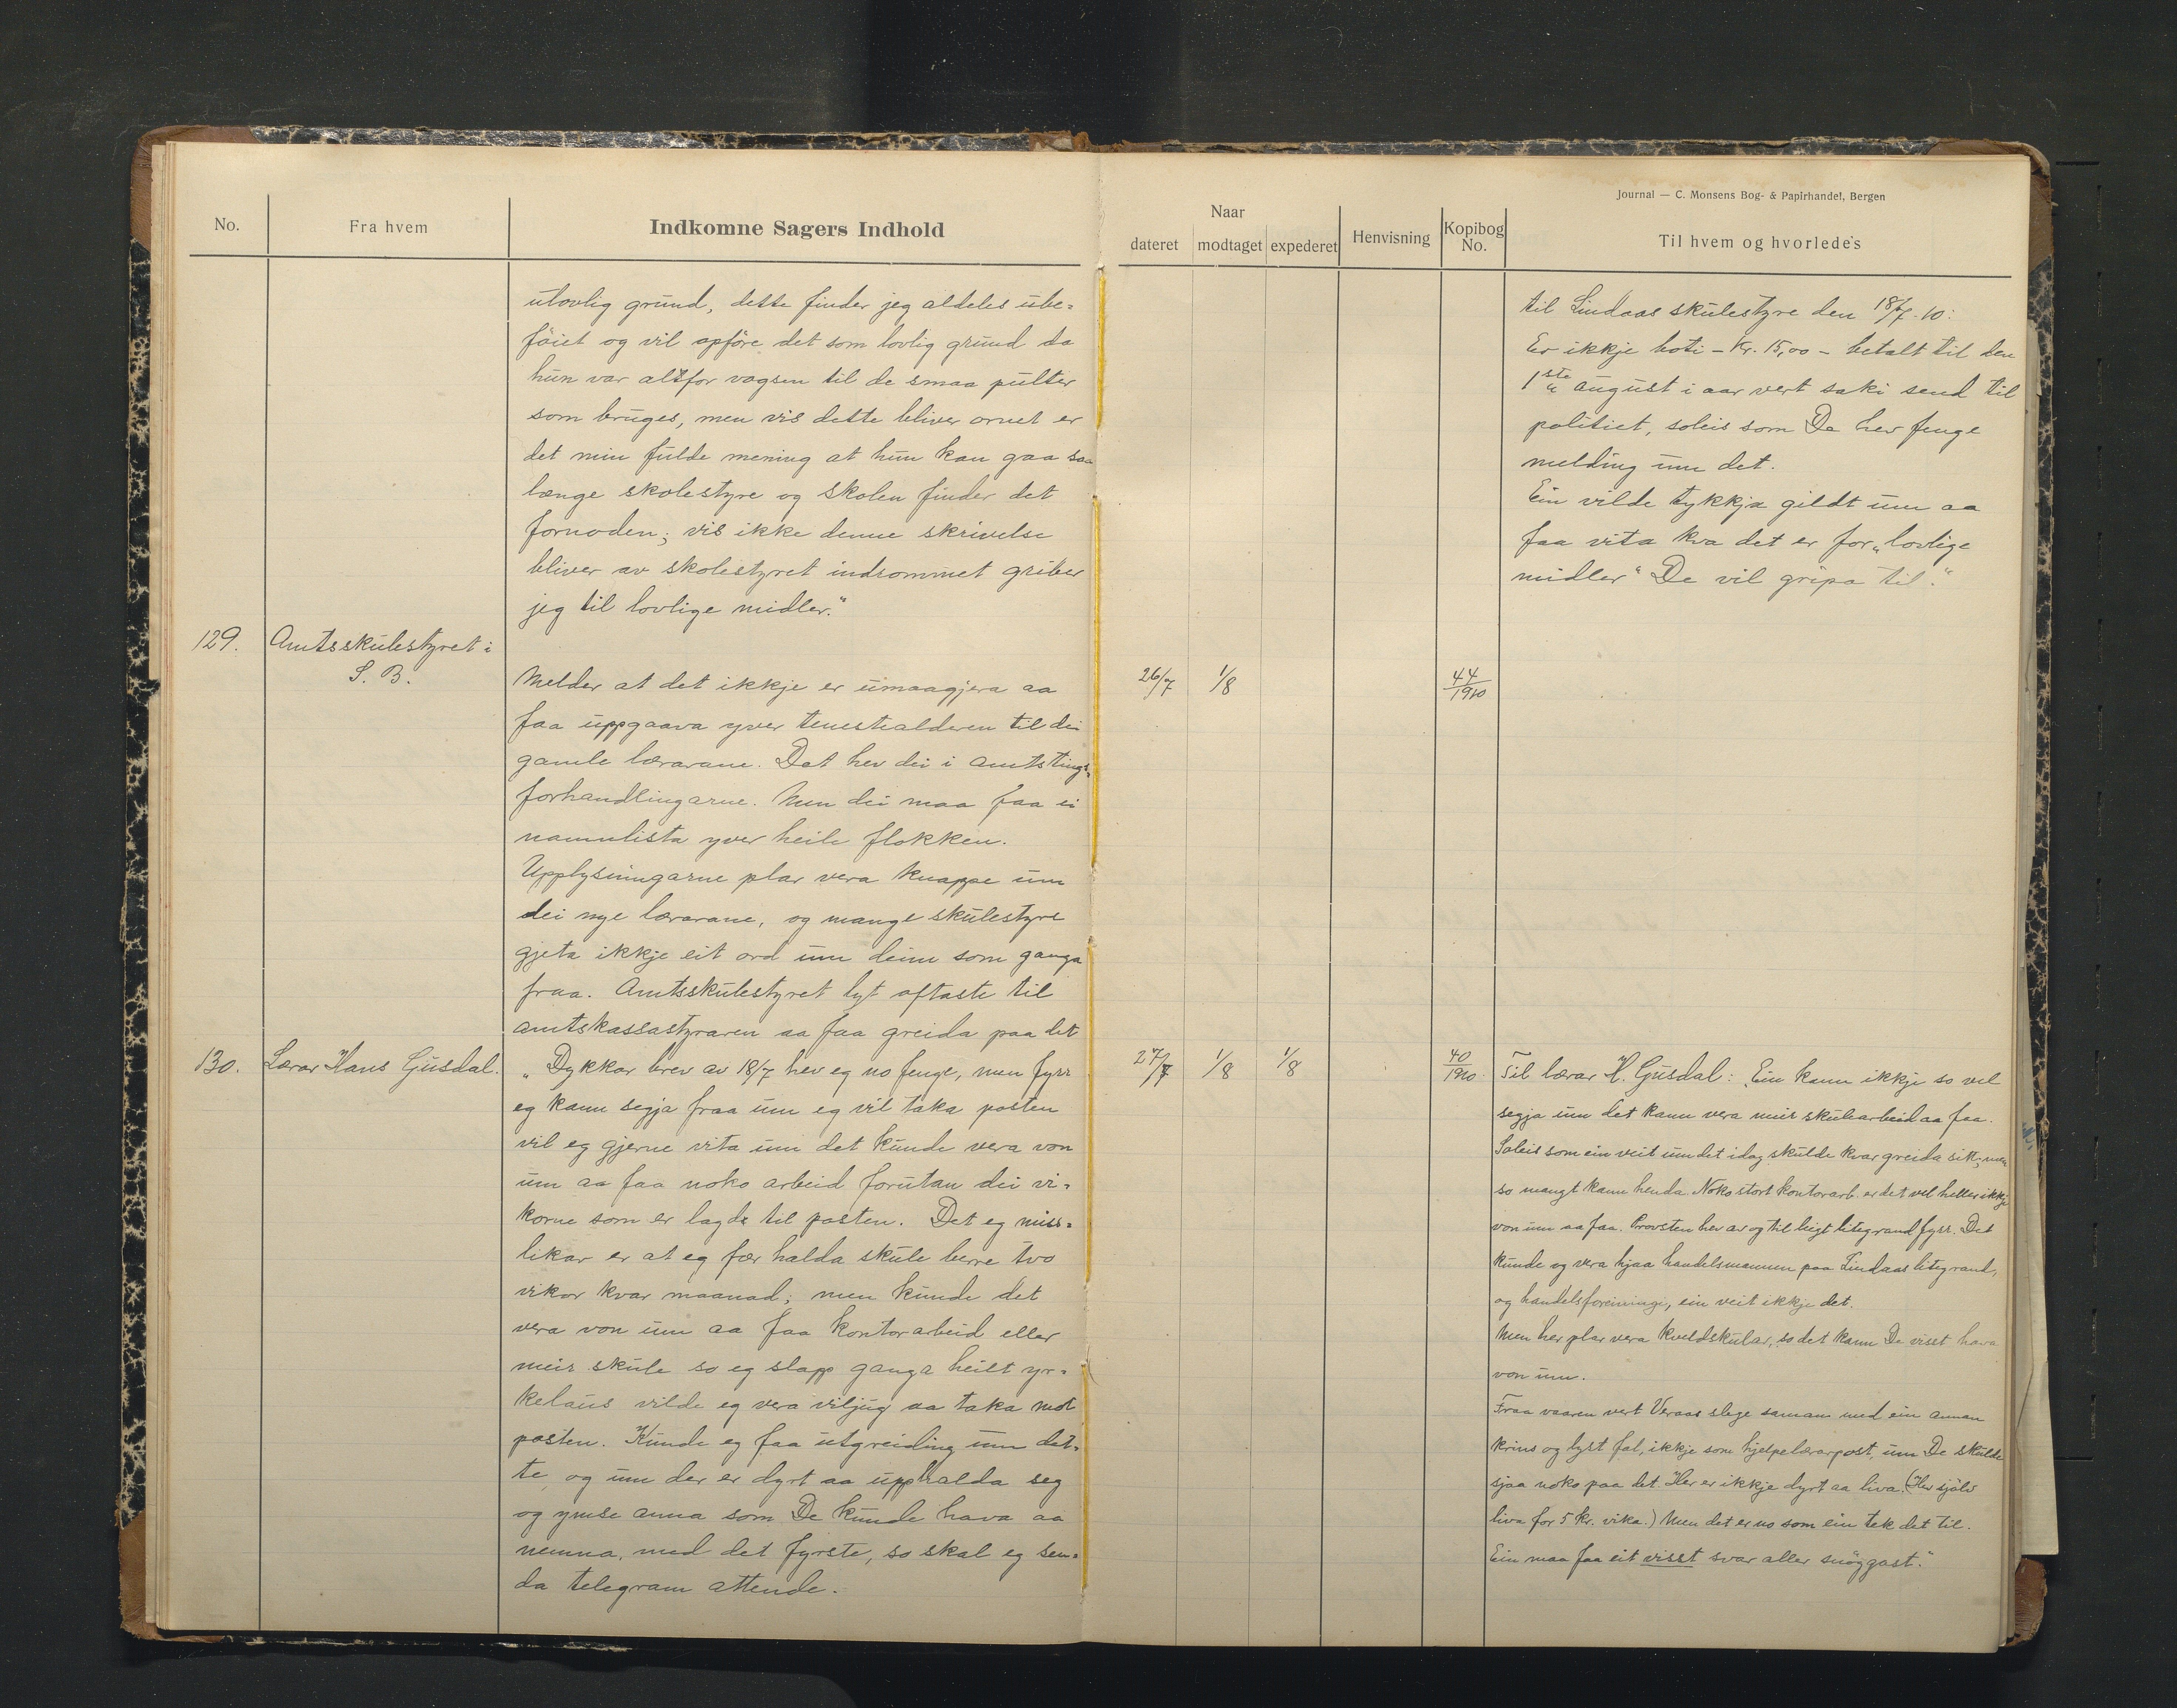 No.
Fra hvem
Indkomne Sagers Indhold
utovlig grund, dette finder jeg aldeles ube=
føiet og vil opføre det som lovlig grund da
hun var altfor vogsen til de smaa pulter
som bruges, men vis dette bliver ornet er
det min fulde mening at hun kan gaa saa
længe skolestyre og skolen finder det
fornøden; vis ikke denne skrivelse
bliver av skolestyret indrømmet griber
jeg til lovlige midler."
129.
Amtsskulestyret i
S. B.
Melder at det ikkje er umaagjera aa
faa uppgaava yver tenestealderen til dei
gamle lærarane. Dat hev dei i amtstings=
forhandlingarne. Men dei maa faa ei
namnlista yver heile flokken.
Upplysningarne plar vera knappe um
dei nye lærarane, og mange skulestyre
gjeta ikkje eit ord um deim som ganga
fraa. Amtsskulestyret lyt oftaste til
amtskassastyraren aa faa greida paa det
130.
Lærar Hans Gusdal.
„Dykkar brev av 18/7 hev eg no fenge, men fyrr
eg kann segja fraa um eg vil taka posten
vil eg gjerne vita um det kunde vera von
um aa faa noko arbeid forutan dei vi=
korne som er lagde til posten. Det eg miss=
likar er at eg fær halda skule berre tvo
vikor kvar maanad; men kunde det
vera von um aa faa kontorarbeid eller
meir skule so eg slapp ganga heilt yr=
kelaus vilde eg vera viljug aa taka mot
posten. Kunde eg faa utgreiding um det=
te, og um der er dyrt aa upphalda seg
og ymse anna som De kunde hava aa
nemna, med det fyrste, so skal eg sen=
da telegram attende.
Journal — C. Monsens Bog- & Papirhandel, Bergen
Naar
dateret
modtaget
expederet
Henvisning
Kopibog
No.
Til hvem og hvorledes
til Lindaas skulestyre den 18/7.10:
Er ikkje boti – Kr. 15,00 – betalt til den
1ste august i aar vert saki send til
politiet, soleis som De hev fenge
melding um det.
Ein vilde tykkja gildt um aa
faa vita kva det er for „lovlige
midler" De vil gripa til."
26/7
1/8
44/1910
27/7
1/8
1/8
40/1910
Til lærar H. Gusdal: Ein kann ikkje so vel
segja um det kann vera meir skulearbeid aa faa.
Soleis som ein veit um det idag skulde kvar greida sitt, men
so mangt kann henda. Noko stort kontorarb. er det vel heller ikkje
von um aa faa. Provsten hev av og til leigt litegrand fyrr. Det
kunde og vera hjaa handelsmannen paa Lindaas litegrand,
og handelsforeiningi, ein veit ikkje det.
Men her plar vera kveldskular, so det kann De visst hava
von um.
Fraa vaaren vert Veraas slege saman med ein annan
krins og lyst fal, ikkje som hjelpelærarpost, um De skulde
sjaa noko paa det. Her er ikkje dyrt aa liva. (Her sjølv
liva for 5 kr. vika.) Men det er no som ein tek det til.
Ein maa faa eit visst svar aller snøggast."